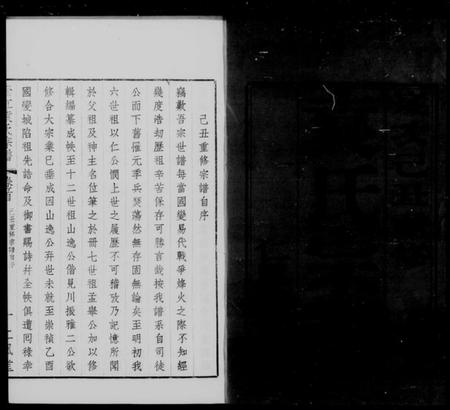 己丑重修宗譜自序
竊歎吾宗世譜每當國變易代戰爭烽火之際不知經
幾度浩劫歷祖宗保存可勝言哉按我譜系自司徒
公而下舊罹元季兵燹蕩然無存固無論矣至明初我
六世祖以仁公憫上世之履歷不可稽攷乃記憶所聞
於父祖及神主名位筆之於冊七世祖孟舉公加以修
輯編纂成帙至十二世祖山逸公偕見川振雅二公欲
修合大宗業已垂成因山逸公弃世未就至崇禎乙酉
國變城陷祖先誥命及御書賜詩幷全帙俱遭回祿幸
氏宗譜
卷首
己丑重修宗譜自序